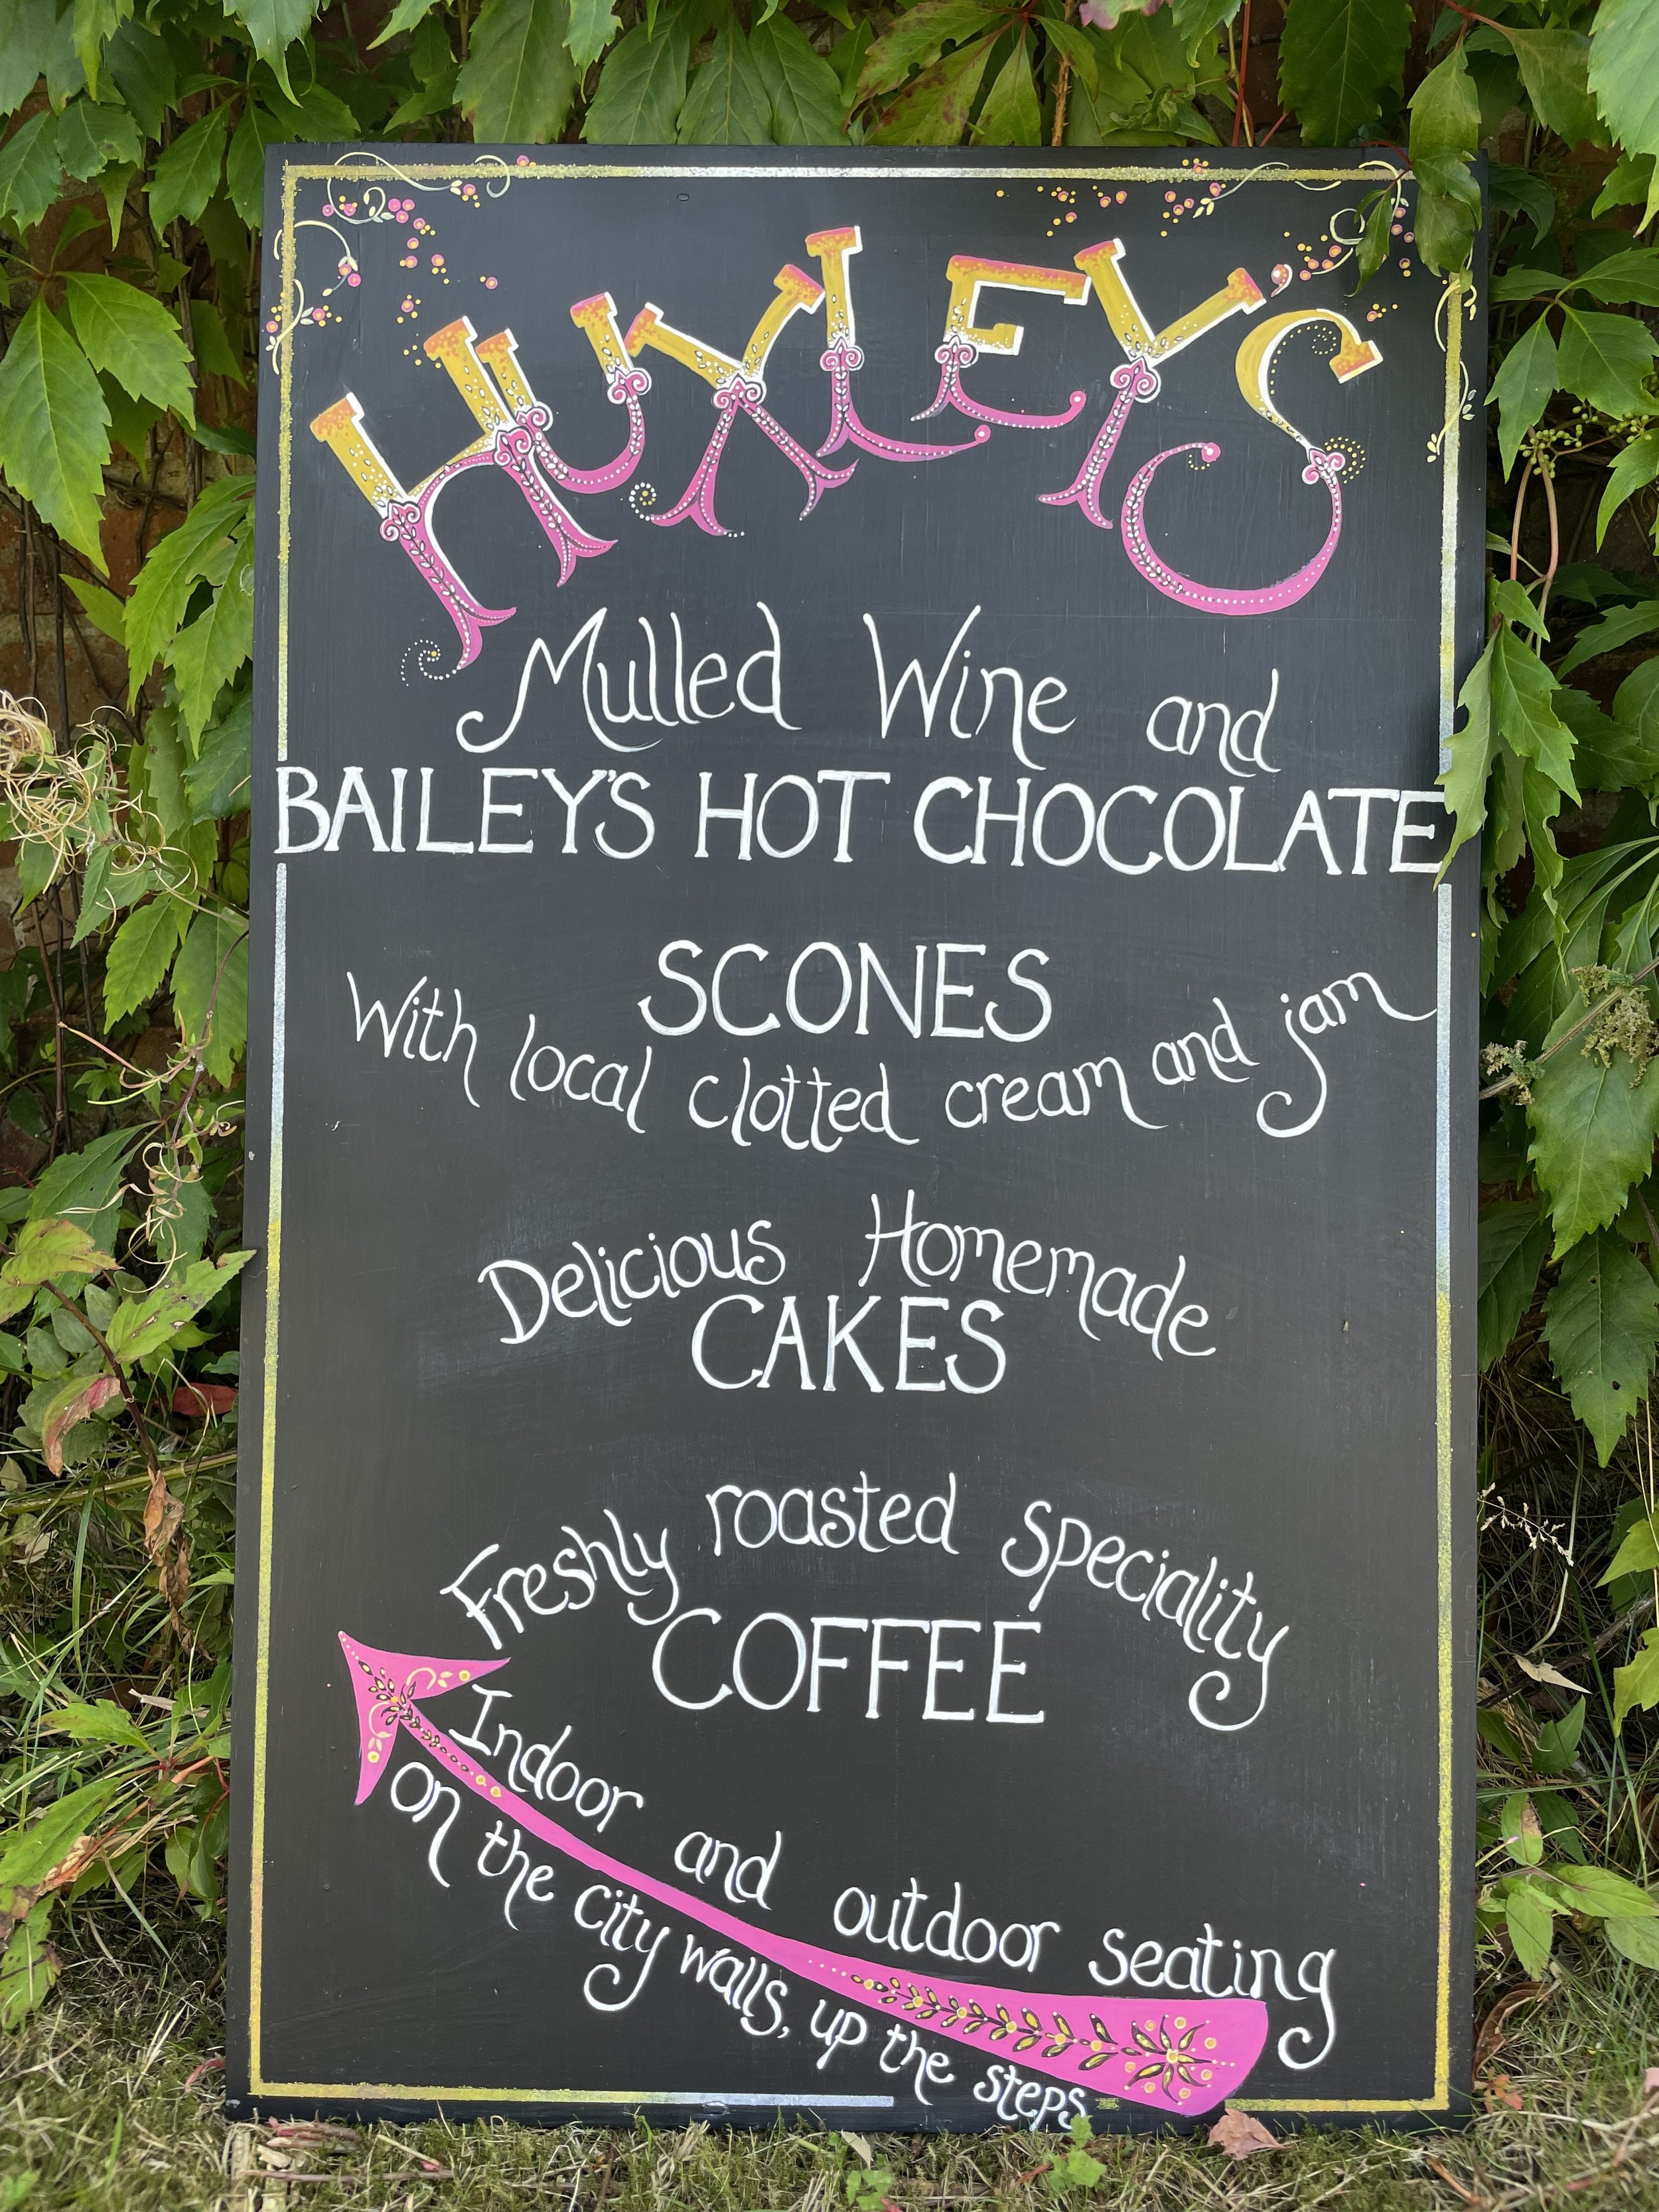 HUXLEY'S
Mulled Wine and
BAILEY'S HOT CHOCOLATE
SCONES
With local clotted cream and jam
Delicious Homemade
CAKES
Freshly roasted speciality
COFFEE
Indoor and outdoor seating
on the city walls, up the steps